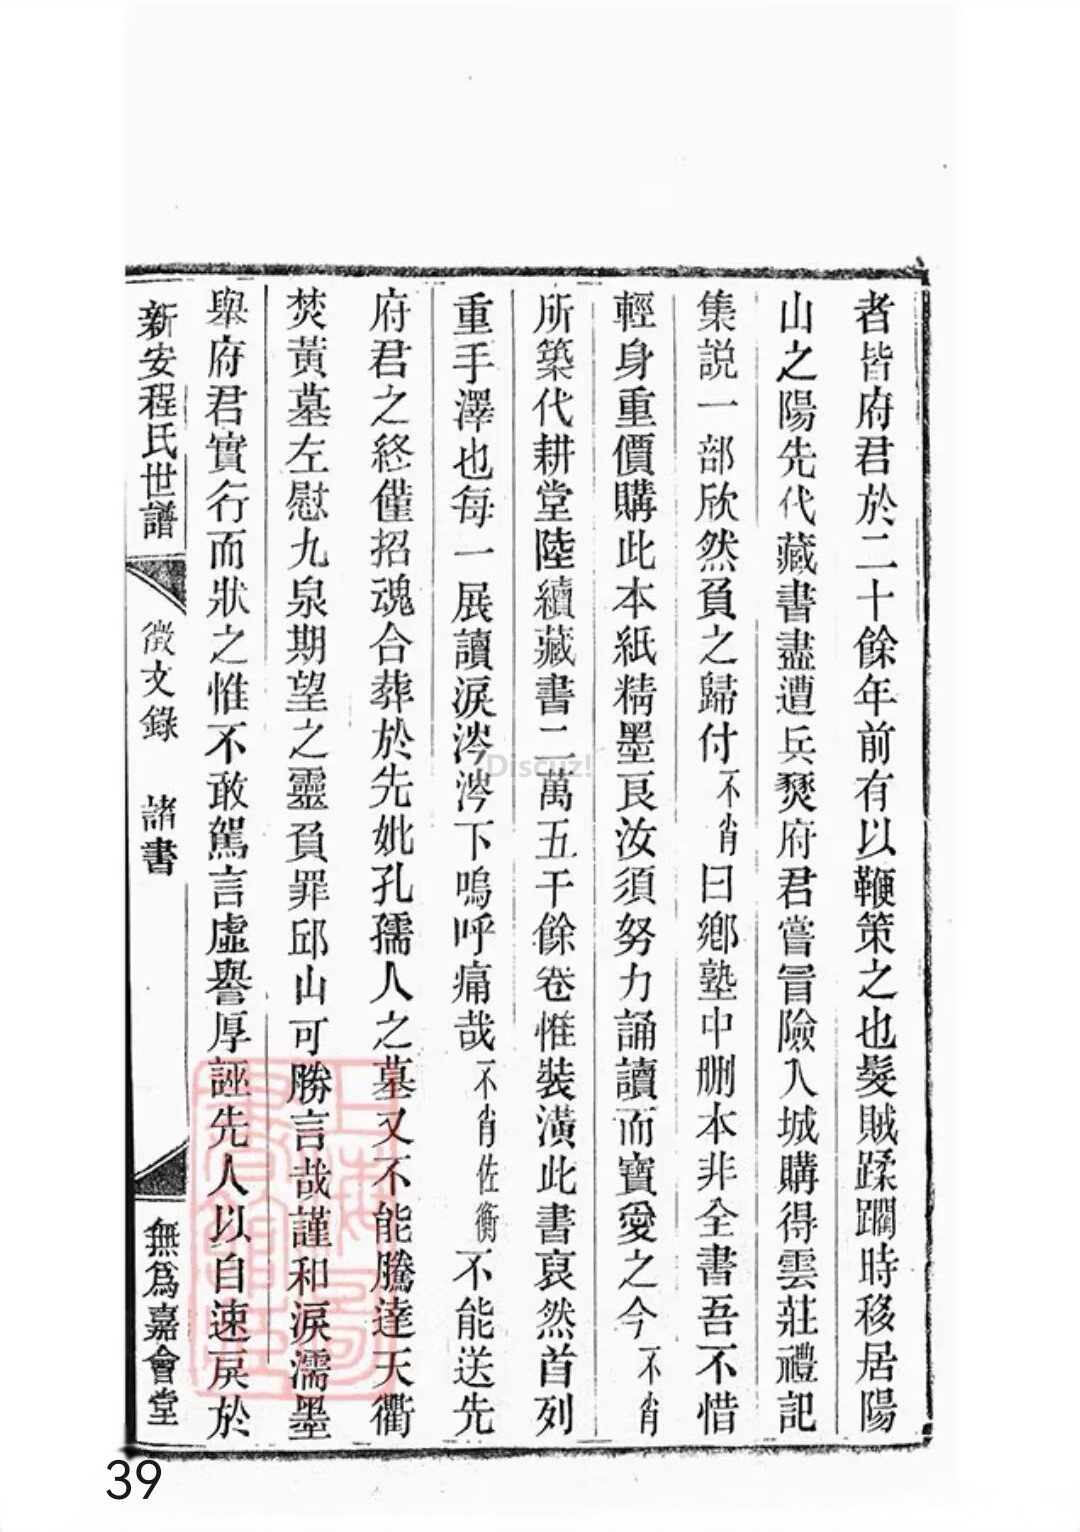 者皆府君於二十餘年前有以鞭策之也髮賊蹂躙時移居陽
山之陽先代藏書盡遭兵燹府君嘗冒險入城購得雲莊禮記
集説一部欣然負之歸付不肖曰鄉塾中刪本非全書吾不惜
輕身重價購此本紙精墨良汝須努力誦讀而寶愛之今不肖
所築代耕堂陸續藏書二萬五千餘卷惟裝潢此書裒然首列
重手澤也每一展讀淚涔涔下嗚呼痛哉不肖佐衡不能送先
府君之終僅招魂合葬於先妣孔孺人之墓又不能騰達天衢
焚黃墓左慰九泉期望之靈負罪邱山可勝言哉謹和淚濡墨
舉府君實行而狀之惟不敢駕言虛譽厚誣先人以自速戾於
新安程氏世譜 徵文錄 諸書 無爲嘉會堂
上海圖書館藏
Discuz!
39